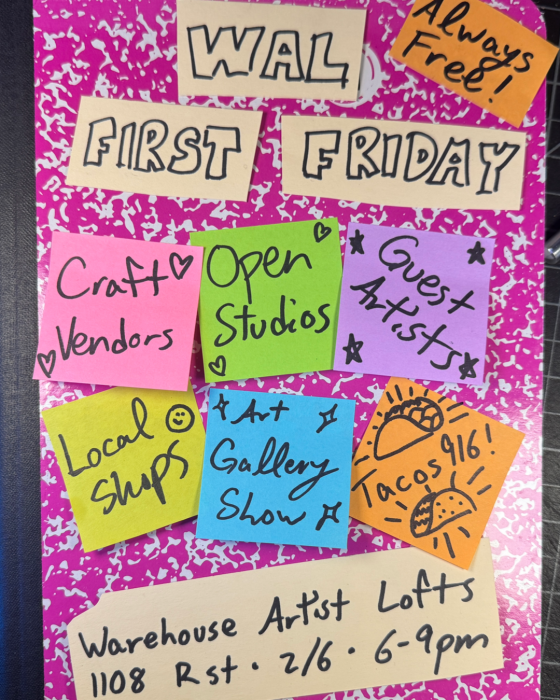 WAL
Always
Free!
FIRST FRIDAY
Craft
Vendors
Open
Studios
Guest
Artists
Local
Shops
Art
Gallery
Show
916!
Tacos
Warehouse Artist Lofts
1108 R st · 2/6 · 6-9pm